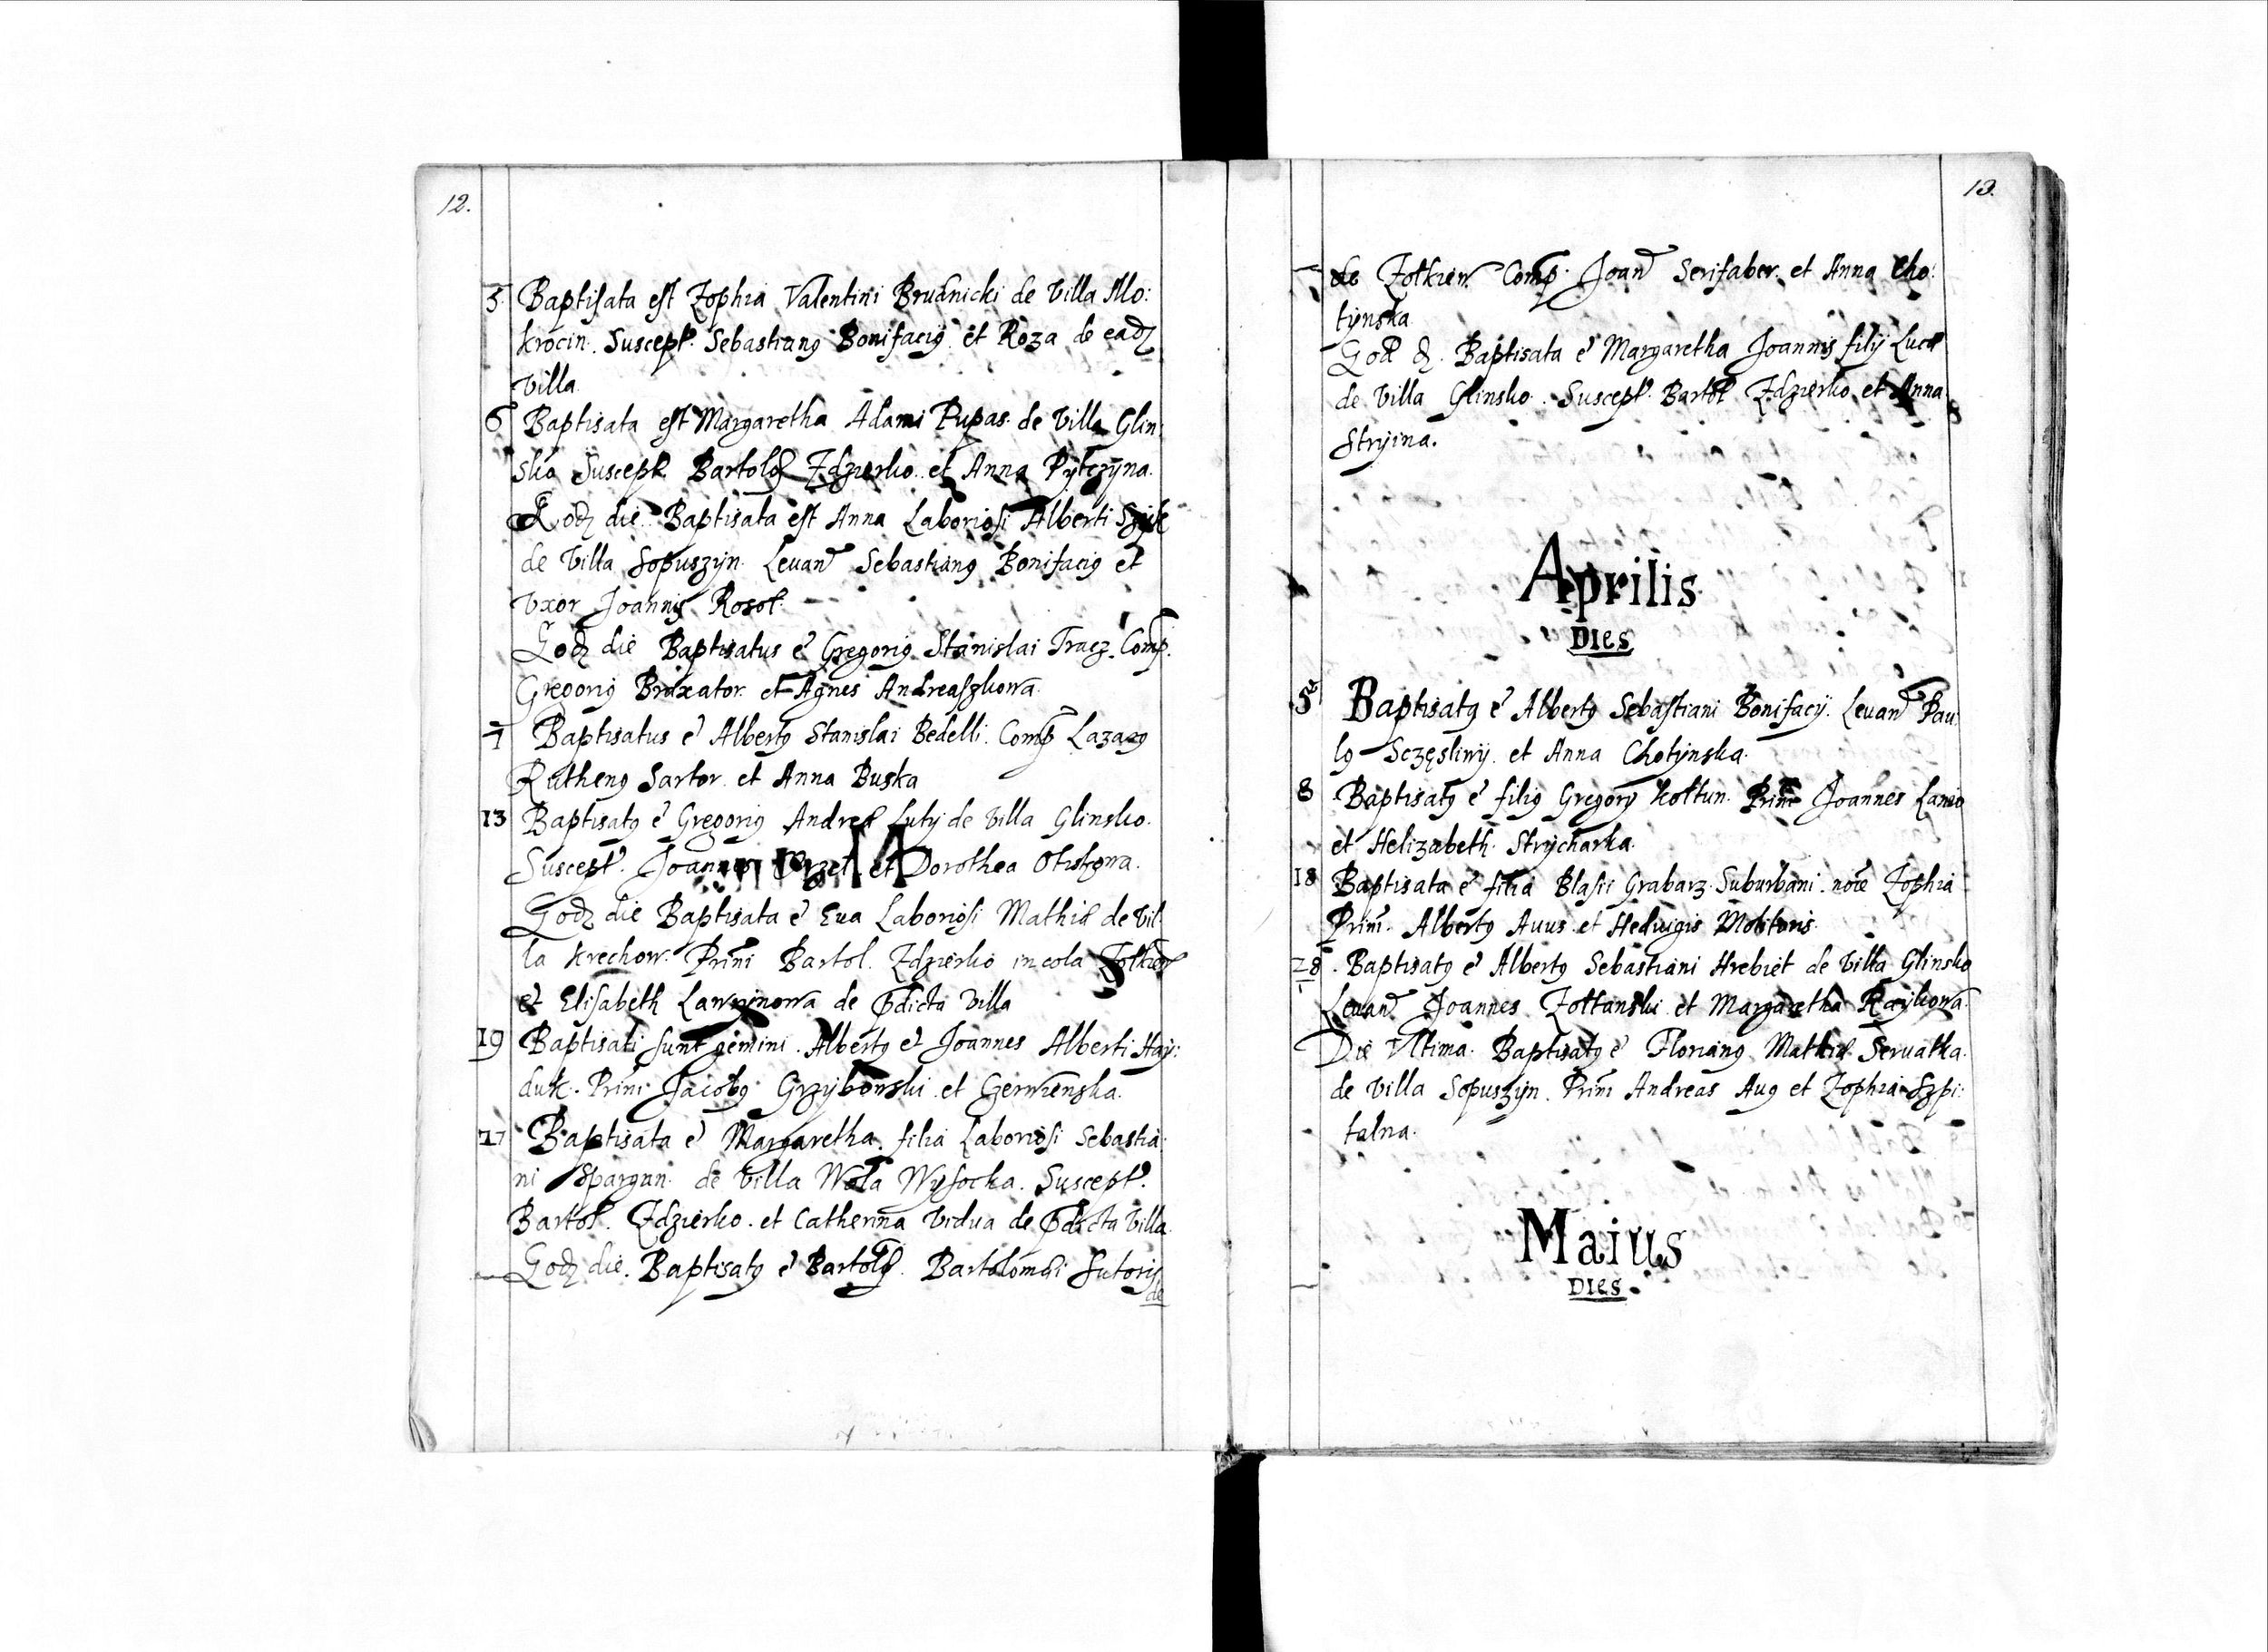 12.
5. Baptisata est Zophia Valentini Brudnicki de Villa Mo:
krocin. Suscept. Sebastiang Bonifacig et Roza de eadz
Villa.
6 Baptisata est Margaretha Adami Pupas. de Villa Glin:
sko Suscept Bartolg Zdzierko. et Anna Pytczyna.
Eodz die. Baptisata est Anna Laboriosi Alberti
de Villa Sopuszyn. Leuan Sebastiang Bonifacig et
Vxor Joannis Rosol.
Eodz die Baptisatus e Gregorig Stanislai Tracz. Comp.
Gregorig Braxator. et Agnes Andreaszkowa.
7 Baptisatus e Albertg Stanislai Bedelli. Comp Lazarg
Rutheng Sartor. et Anna Buska
13 Baptisatg e Gregorig Andreæ Luty de Villa Glinsko.
Suscept. Joannes et Dorothea
Eodz die Baptisata e Eua Laboriosi Mathiæ de Vil
la Krechow. Prini Bartol. Zdzierko incola Zolkiew
et Elisabeth Lawrinowa de pdicta Villa
19 Baptisati sunt gemini. Albertg et Joannes Alberti Hay:
duk. Prini Jacobg Grzybowski et Czerwienska.
27 Baptisata e Margaretha filia Laboriosi Sebastia:
ni Spargun. de Villa Wola Wysocka. Suscept.
Bartol. Zdzierko. et Catherina Vidua de pdicta Villa.
Eodz die. Baptisatg e Bartolg. Bartolomæi Sutoris
de
13.
de Zolkiew Comp. Joan Serifaber. et Anna Cho:
tynska
Eod d. Baptisata e Margaretha Joannis filij Lucæ
de Villa Glinsko. Suscept. Bartol Zdzierko et Anna
Stryina.
Aprilis
DIES
5 Baptisatg e Albertg Sebastiani Bonifacij. Leuan Pau:
lg Sczęsliwy. et Anna Chotynska.
8 Baptisatg e filig Gregorij Koltun. Prini Joannes Lanio
et Helizabeth Strycharka.
18 Baptisata e filia Blasii Grabarz Suburbani. noie Zophia
Prini. Albertg Auus et Heduigis Molitoris.
28. Baptisatg e Albertg Sebastiani Hrebiet de Villa Glinsko
Leuan Joannes Zoltanski et Margaretha
Die Vltima. Baptisatg e Floriang Mathiæ Seruatka.
de Villa Sopuszyn. Prini Andreas Aug et Zophia Szpi:
talna.
Maius
DIES.